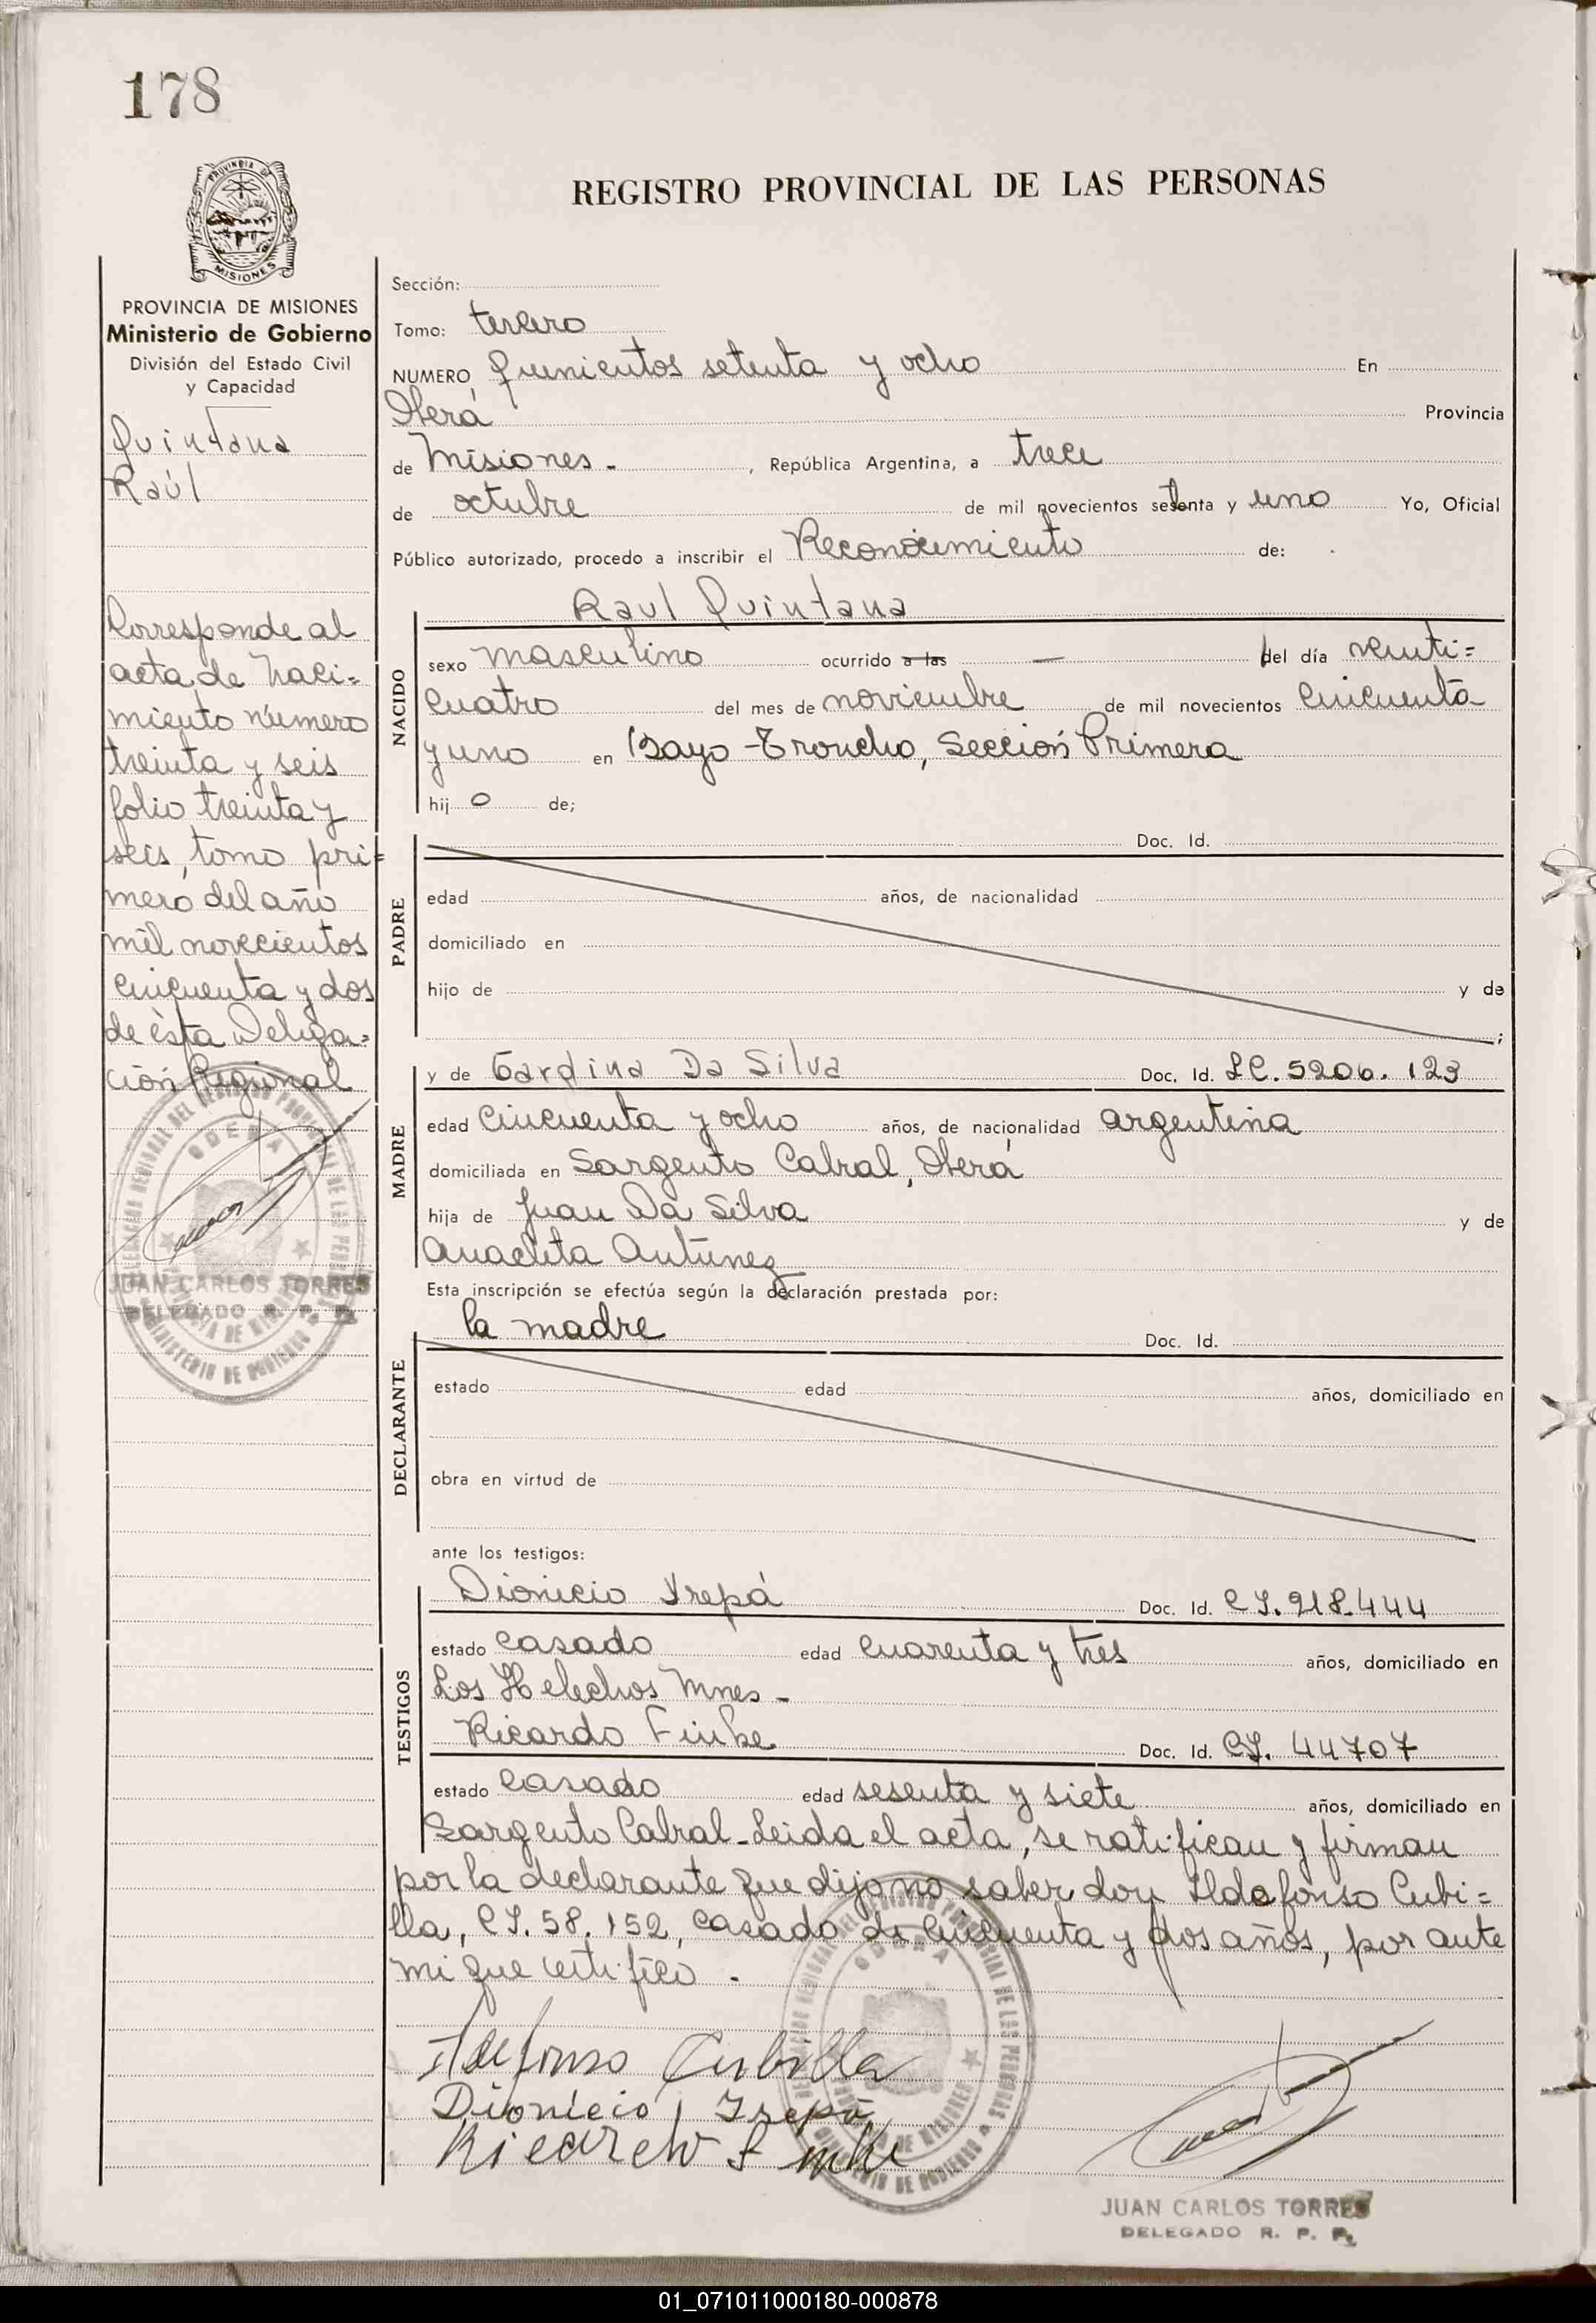 178
PROVINCIA DE MISIONES
REGISTRO PROVINCIAL DE LAS PERSONAS
PROVINCIA DE MISIONES
Ministerio de Gobierno
División del Estado Civil
y Capacidad
Quintana
Raúl
Corresponde al
acta de naci=
miento número
treinta y seis
folio treinta y
seis, tomo pri=
mero del año
mil novecientos
cincuenta y dos
de ésta Delega=
ción Regional
OBERA
JUAN CARLOS TORRES
DELEGADO R. P. P.
Sección:
Tomo: tercero
NUMERO quinientos setenta y ocho En
Oberá Provincia
de Misiones - , República Argentina, a trece
de octubre de mil novecientos setenta y uno Yo, Oficial
Público autorizado, procedo a inscribir el Reconocimiento de:
Raul Quintana
NACIDO
sexo masculino ocurrido a las — del día veinti=
cuatro del mes de noviembre de mil novecientos cincuenta
y uno en Bayo-Troncho, Sección Primera
hij o de;
PADRE
Doc. Id.
edad años, de nacionalidad
domiciliado en
hijo de y de
;
MADRE
y de Gardina Da Silva Doc. Id. LC. 5206. 123
edad cincuenta y ocho años, de nacionalidad argentina
domiciliada en Sargento Cabral, Oberá
hija de Juan Da Silva y de
Anacleta Antunez
Esta inscripción se efectúa según la declaración prestada por:
la madre Doc. Id.
DECLARANTE
estado edad años, domiciliado en
obra en virtud de
ante los testigos:
TESTIGOS
Dionicio Yrepá Doc. Id. CI. 918.444
estado casado edad cuarenta y tres años, domiciliado en
Los Helechos Mnes -
Ricardo Finke Doc. Id. CI. 44707
estado casado edad sesenta y siete años, domiciliado en
Sargento Cabral - Leida el acta, se ratifican y firman
por la declarante que dijo no saber, don Ildefonso Cubi=
lla, CI. 58.152, casado de cincuenta y dos años, por ante
mi que certifico .
Ildefonso Cubilla
Dionicio Irepá
Ricardo Finke
OBERA
JUAN CARLOS TORRES
DELEGADO R. P. P.
01_071011000180-000878